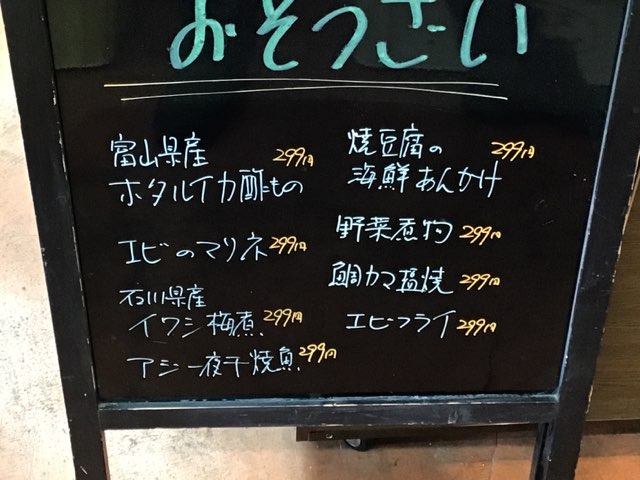 おそうざい
富山県産 299円
ホタルイカ酢もの
エビのマリネ 299円
石川県産
イワシ梅煮 299円
アジ一夜干焼魚 299円
焼豆腐の 299円
海鮮あんかけ
野菜煮物 299円
鯛カマ塩焼 299円
エビフライ 299円